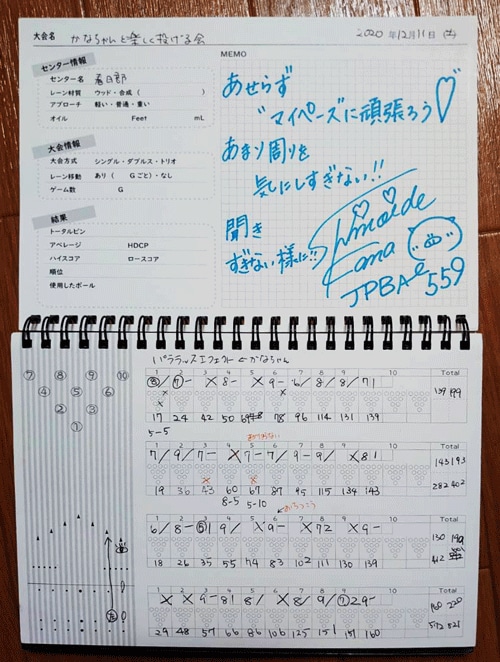 大会名 かなちゃんと楽しく投げる会
2020年12月11日 (土)
センター情報
センター名 春日部
レーン材質 ウッド・合成 ( )
アプローチ 軽い・普通・重い
オイル Feet mL
大会情報
大会方式 シングル・ダブルス・トリオ
レーン移動 あり ( Gごと)・なし
ゲーム数 G
結果
トータルピン
アベレージ HDCP
ハイスコア ロースコア
順位
使用したボール
MEMO
あせらず
マイペースに頑張ろう♡
あまり周りを
気にしすぎない!!
聞き
すぎない様に!!
Shimoide
Kana
JPBA 559
パララックスエフェクト ← かなちゃん
1 2 3 4 5 6 7 8 9 10 Total
⑧/ ⑦- X 8- X 9- 6/ 8/ 8/ 71
17 24 42 50 69 78 96 114 131 139
139 199
5-5
7/ 9/ 7- X 7- 7/ 9- 9/ X 81
19 36 43 60 67 87 95 115 134 143
143 193
282 402
8-5 5-10
6/ 8- ⑤1 9/ X 9- X 72 X 9-
18 26 35 55 74 83 102 111 130 139
130 199
412
X X 9- 81 8/ X 8/ 9/ ⑦2 9-
29 48 57 66 86 106 125 151 160
160 220
572 821
⑦ ⑧ ⑨ ⑩
④ ⑤ ⑥
② ③
①